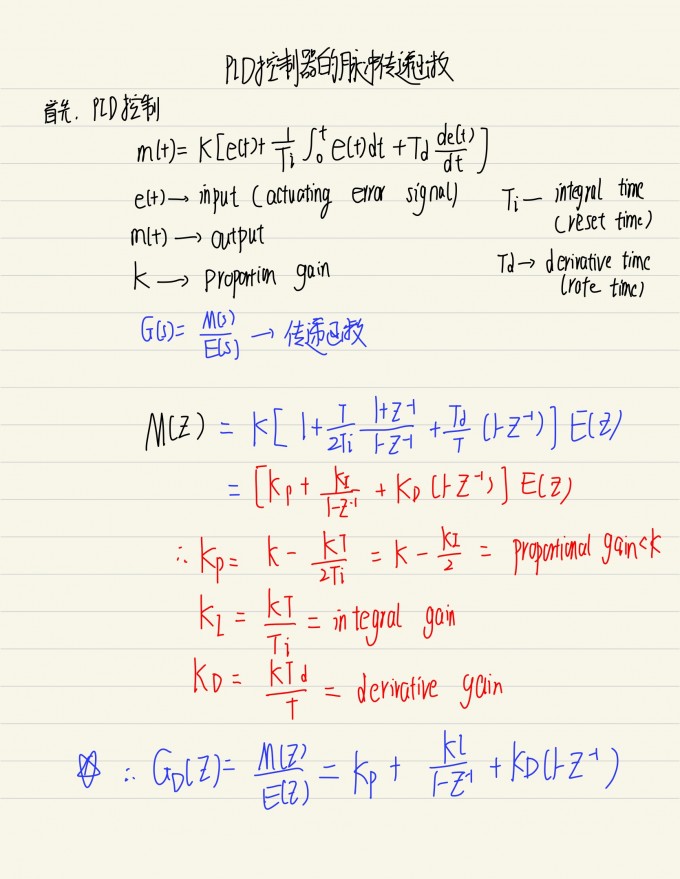 PID控制器的脉冲传递函数
首先. PID控制
m(t)= K[e(t)+ \frac{1}{Ti} ∫_0^t e(t)dt + Td \frac{de(t)}{dt}]
e(t)→ input (actuating error signal)
m(t) → output
K → proportion gain
Ti — integral time
(reset time)
Td → derivative time
(rate time)
G(s)= \frac{M(s)}{E(s)} → 传递函数
M(Z) = K[ 1+ \frac{T}{2Ti} \frac{1+Z^{-1}}{1-Z^{-1}} + \frac{Td}{T} (1-Z^{-1})] E(Z)
= [Kp + \frac{KI}{1-Z^{-1}} + KD (1-Z^{-1})] E(Z)
∴ Kp = K - \frac{KT}{2Ti} = K - \frac{KI}{2} = proportional gain<K
KI = \frac{KT}{Ti} = integral gain
KD = \frac{KTd}{T} = derivative gain
☆ ∴ G_D(Z)= \frac{M(Z)}{E(Z)} = Kp + \frac{KI}{1-Z^{-1}} + KD(1-Z^{-1})